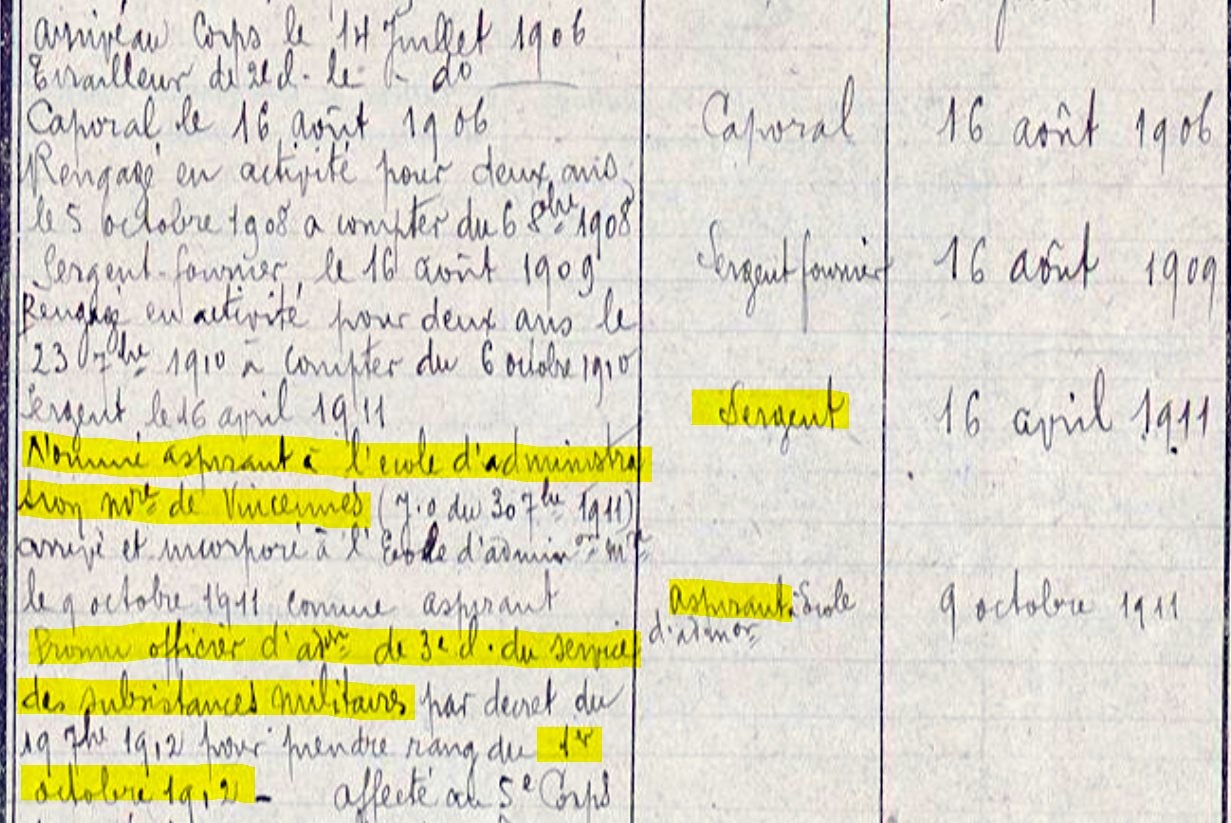 arrivé au Corps le 14 Juillet 1906
Tirailleur de 2e cl. le - do
Caporal le 16 août 1906
Caporal
16 août 1906
Rengagé en activité pour deux ans,
le 5 octobre 1908 a compter du 6 8bre 1908
Sergent-fourrier, le 16 août 1909
Sergent fourrier
16 août 1909
Rengagé en activité pour deux ans le
23 7bre 1910 à compter du 6 octobre 1910
Sergent le 16 avril 1911
Sergent
16 avril 1911
Nommé aspirant à l'école d'administra
tion mre de Vincennes (J.O du 30 7bre 1911)
arrivé et incorporé à l'Ecole d'admin on mre
le 9 octobre 1911 comme aspirant
aspirant Ecole
d'admon
9 octobre 1911
Promu officier d'adon de 3e cl. du service
des subsistances militaires par decret du
19 7bre 1912 pour prendre rang du 1er
octobre 1912 - affecté au 5e Corps